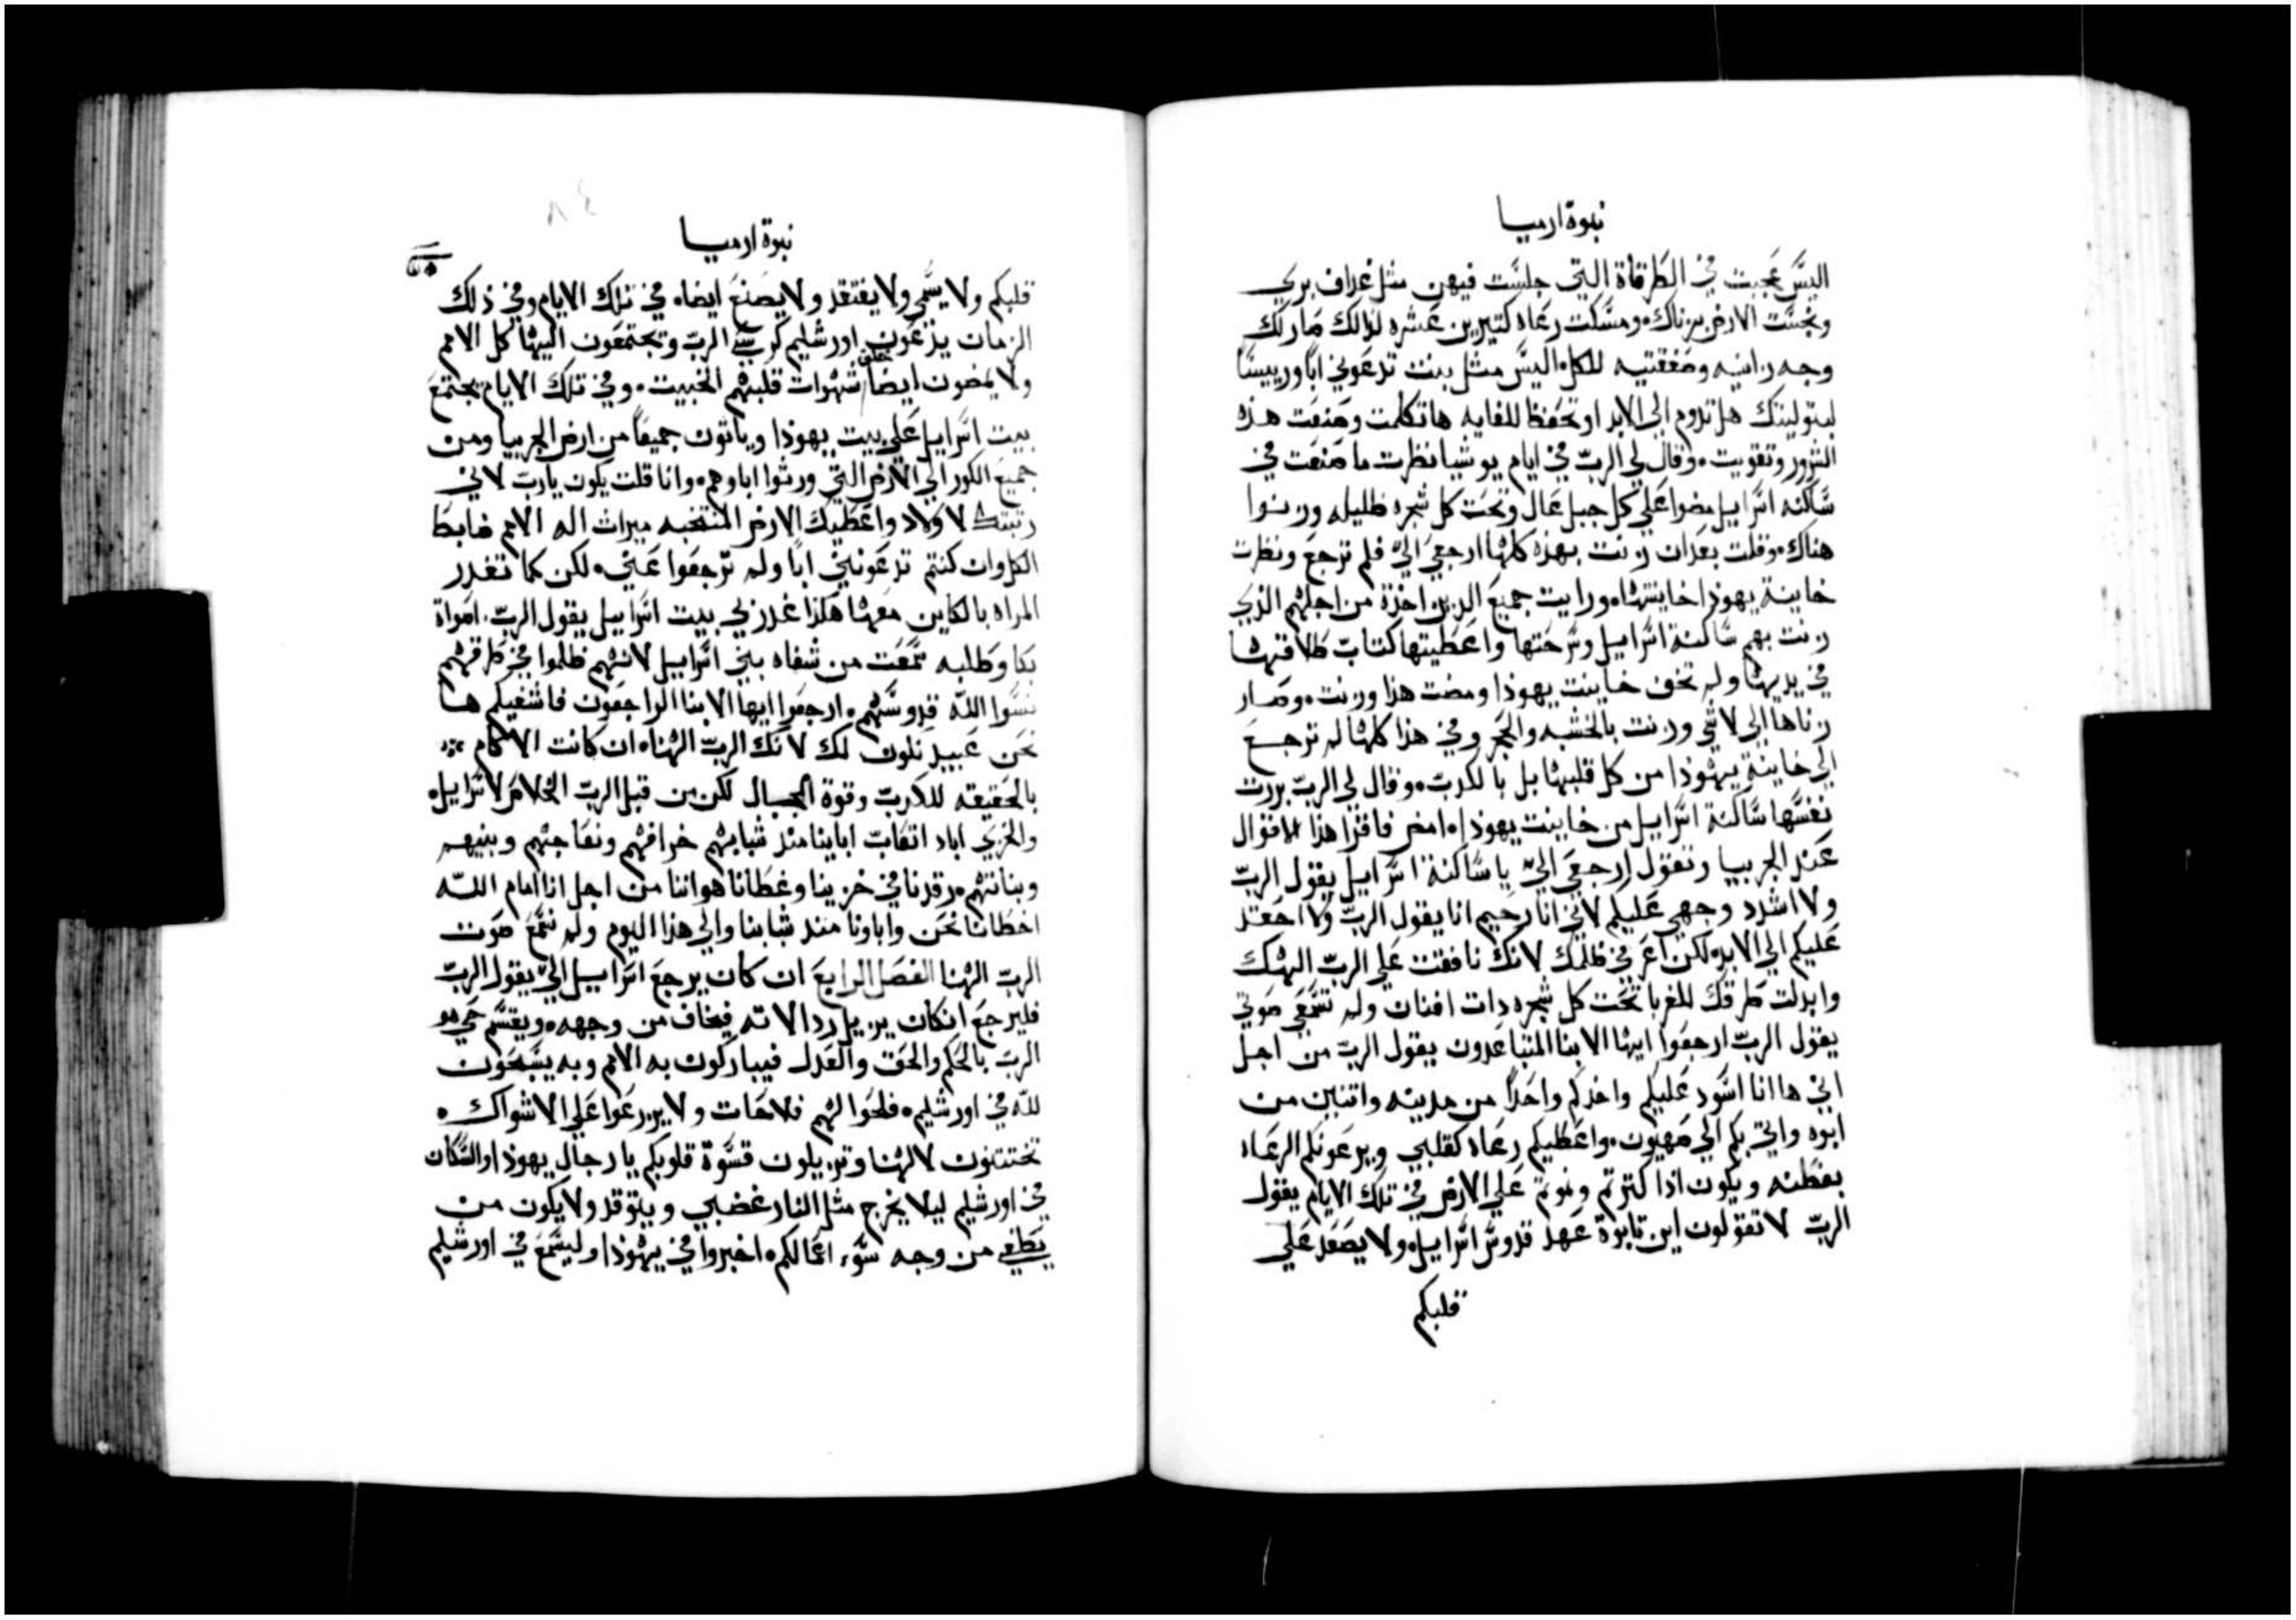 نبوة ارميا
اليس عجبت في الطرقاة التي جلست فيهن مثل غراف بري
ونجست الارض بزناك ومسكت رعاه كتيرين عشره لذالك صار لك
وجه زانيه وصفقتيه للكل اليس مثل بيت تدعوني ابا ورييسا
لبتوليتك هل تدوم الي الابد او تحفظ للغايه ها تكلمت وصنعت هذه
الشرور وتقويت وقال لي الرب في ايام يوشيا نظرت ما صنعت في
ساكنة اسراييل مضوا علي كل جبل عال وتحت كل شجره ظليله وزنوا
هناك وقلت بعد ان زنت بهذه كلها ارجعي الي فلم ترجع ونظرت
خاينة يهوذا خاينتها ورايت جميع الدين اخذة من اجلهم الذي
زنت بهم ساكنة اسراييل وسرحتها واعطيتها كتاب طلاقتها
في يديها ولم تخف خاينت يهوذا ومضت هذا وزنت وصار
زناها الي لا شي وزنت بالخشبه والحجر وفي هذا كلها لم ترجع
الي خاينة يهوذا من كل قلبها بل بالكدب وقال لي الرب بررت
نفسها ساكنة اسراييل من خاينت يهوذا امض فاقرا هذا الاقوال
عند الجربيا وتقول ارجعي الي يا ساكنة اسراييل يقول الرب
ولا اشدد وجهي عليكم لاني انا رحيم انا يقول الرب ولا احقد
عليكم الي الابد لكن اعرفي ظلمك لانك نافقت علي الرب الهك
وابدلت طرقك للغربا تحت كل شجره دات افنان ولم تسمعي صوتي
يقول الرب ارجعوا ايها الابنا المتباعدون يقول الرب من اجل
اني ها انا اسود عليكم واخدكم واحدا من مدينه واتنين من
ابوه واتي بكم الي صهيون واعطيكم رعاه كقلبي ويرعونكم الرعاه
بفطنه ويكون اذا كترتم ونموتم علي الارض في تلك الايام يقول
الرب لا تقولون اين تابوة عهد قدوس اسراييل ولا يصعد علي
قلبكم
نبوة ارميا
قلبكم ولا يسمي ولا يفتقد ولا يصنع ايضاه في تلك الايام وفي ذلك
الزمان يدعون اورشليم كرسي الرب وتجتمعون اليها كل الامم
ولا يمضون ايضا خلف شهوات قلبهم الخبيت وفي تلك الايام يجتمع
بيت اسراييل علي بيت يهوذا وياتون جميعا من ارض الجربيا ومن
جميع الكور الي الارض التي ورتوا اباوهم وانا قلت يكون يارب لاني
رتبتك لاولاد واعطيك الارض المنتخبه ميراث اله الامم ضابط
الكل وان كنتم تدعونني ابا ولم ترجعوا عني لكن كما تغدر
المراه بالكاين معها هكذا غدر لي بيت اسراييل يقول الرب اصواة
بكا وطلبه سمعت من شفاه بني اسراييل لانهم ظلموا في طرقهم
نسوا الله قدوسهم ارجعوا ايها الابنا الراجعون فاشفيكم ها
نحن عبيد نكون لك لانك الرب الهناه ان كانت الاكام
بالحقيقه للكدب وقوة الجبال لكن من قبل الرب الخلاص لاسراييل
والخزي اباد اتعاب اباينا مند شبابهم خرافهم ونعاجهم وبنيهم
وبناتهم رقدنا في خزينا وغطانا هواننا من اجل انا امام الله
اخطانا نحن واباونا مند شبابنا والي هذا اليوم ولم نسمع صوت
الرب الهنا الفصل الرابع ان كان يرجع اسراييل الي يقول الرب
فليرجع ان كان يزيل ردالاته فيخاف من وجهه ويقسم حي هو
الرب بالحكم والحق والعدل فيباركون به الامم وبه يسبحون
لله في اورشليم فلحوا لهم فلاحات ولا يزرعوا علي الاشواك
تختتنون لالهنا وتزيلون قسوة قلوبكم يا رجال يهوذا والسكان
في اورشليم ليلا يخرج مثل النار غضبي ويتوقد ولا يكون من
يطفي من وجه سوء اعمالكم اخبروا في يهوذا وليسمع في اورشليم